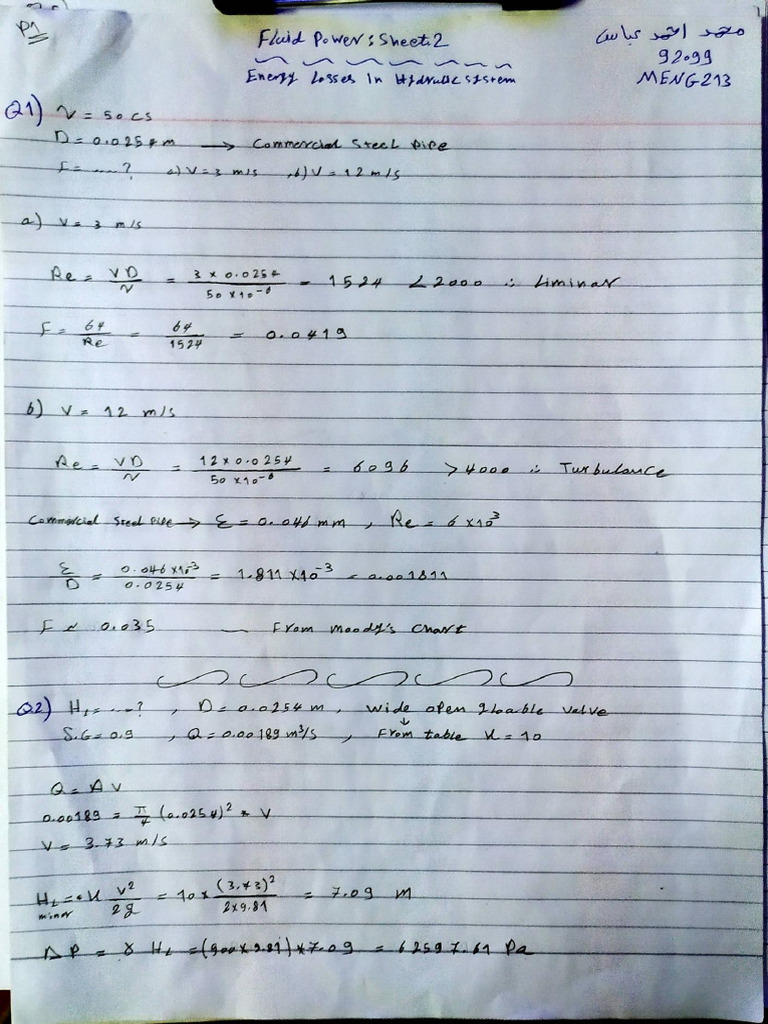 P1
Fluid Power: Sheet 2
Energy Losses In Hydraulic system
محمد احمد عباس
92099
MENG213
Q1) ν = 50 cs
D = 0.0254 m → Commercial Steel Pipe
F = ....? a) V = 3 m/s , b) V = 12 m/s
a) V = 3 m/s
Re = VD/ν = 3 × 0.0254 / 50 × 10⁻⁶ = 1524 < 2000 ∴ Liminar
F = 64/Re = 64/1524 = 0.0419
b) V = 12 m/s
Re = VD/ν = 12 × 0.0254 / 50 × 10⁻⁶ = 6096 > 4000 ∴ Turbulance
Commercial Steel Pipe → ε = 0.046 mm , Re = 6 × 10³
ε/D = 0.046 × 10⁻³ / 0.0254 = 1.811 × 10⁻³ = 0.001811
F ≈ 0.035 — From moody's chart
Q2) H_L = ....? , D = 0.0254 m , wide open gloable valve
↓
S.G = 0.9 , Q = 0.00189 m³/s , From table K = 10
Q = A V
0.00189 = π/4 (0.0254)² * V
V = 3.73 m/s
H_L = K V²/2g = 10 × (3.73)² / 2×9.81 = 7.09 m
minor
ΔP = γ H_L = (900 × 9.81) × 7.09 = 62597.61 Pa